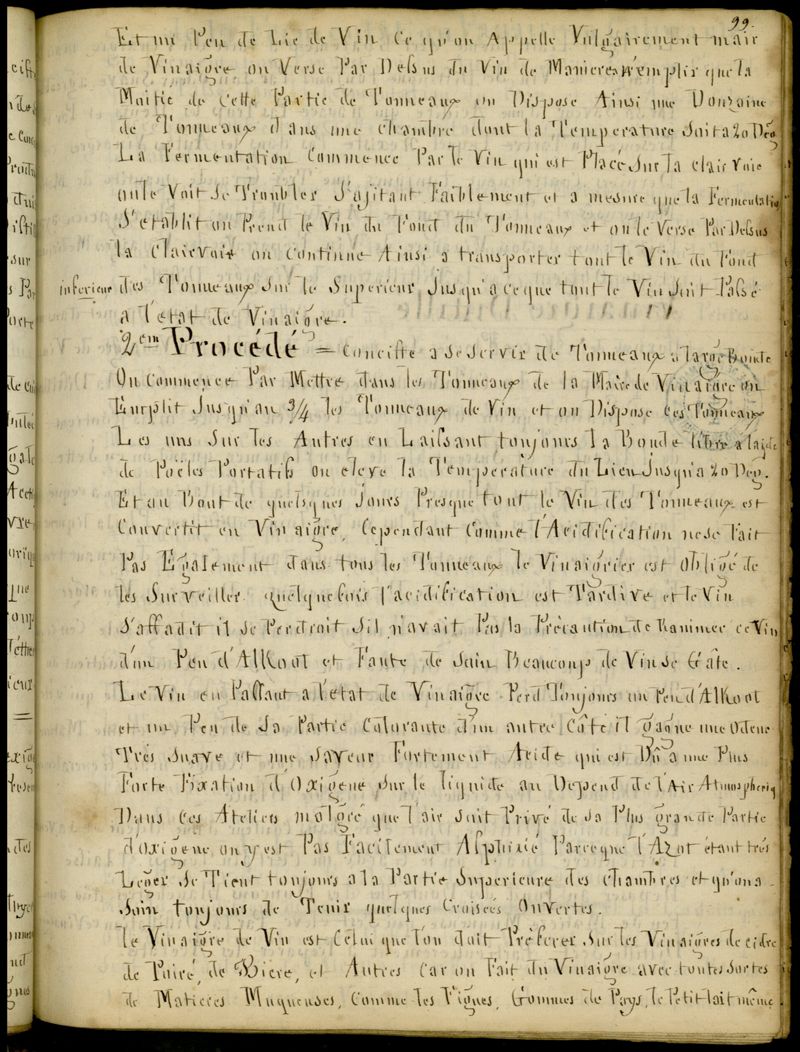 99.
Et un Peu de Lie de Vin Ce qu'on Appelle Vulgairement mair
de Vinaigre on Verse Par Dessus du Vin de Maniere a Remplir que la
Moitié de Cette Partie de Tonneaux on Dispose Ainsi une Douzaine
de Tonneaux dans une chambre dont la Temperature Soit a 20 Deg
La Fermentation Commence Par le Vin qui est Placé Sur la clair Voie
on le Voit Se Troubler S'ajitant Faiblement et a mesure que la Fermentation
S'etablit on Prend le Vin du Fond du Tonneaux et on le Verse Par Dessus
la Clairevoie on Continue Ainsi a transporter tout le Vin du Fond
inferieur des Tonneaux Sur le Superieur Jusqu'a ce que tout le Vin Soit Passé
a l'etat de Vinaigre.
2em Procédé = Conciste a Se Servir de Tonneaux a large Bonde
On Commence Par Mettre dans les Tonneaux de la Maire de Vinaigre on
Emplit Jusqu'au 3/4 les Tonneaux de Vin et on Dispose Ces Tonneaux
Les uns Sur les Autres en Laissant toujours la Bonde libre a laide
de Poëles Portatifs on eleve la Temperature du Lieu Jusqu'a 20 Deg.
Et au Bout de quelques Jours Presque tout le Vin des Tonneaux est
Convertit en Vinaigre, Cependant Comme l'Acidification ne se Fait
Pas Egalement dans tous les Tonneaux le Vinaigrier est Obligé de
les Surveiller quelquefois l'acidification est Tardive et le Vin
S'affadit il Se Perdroit S'il n'avait Pas la Précaution de Ranimer ce Vin
d'un Peu d'Alkool et Faute de Soin Beaucoup de Vin Se Gâte.
Le Vin en Passant a l'etat de Vinaigre Perd Toujours un Peu d'Alkool
et un Peu de Sa Partie Colorante d'un autre Côté il gagne une Odeur
Très Suave et une Saveur Fortement Acide qui est Dû a une Plus
Forte Fixation d'Oxigene Sur le liquide au Depend de l'Air Atmospheriq
Dans Ces Ateliers malgré que l'air Soit Privé de Sa Plus grande Partie
d'oxigene on y est Pas Facilement Asphixié Parceque l'Azot étant très
Leger Se Tient toujours a la Partie Superieure des chambres et qu'on a
Soin toujours de Tenir quelques Croisées Ouvertes.
le Vinaigre de Vin est Celui que l'on doit Préferer Sur les Vinaigres de cidre
de Poiré, de Biere, et Autres Car on Fait du Vinaigre avec toutes Sortes
de Matieres Muqueuses, Comme les Figues, Gommes de Pays, le Petit lait même